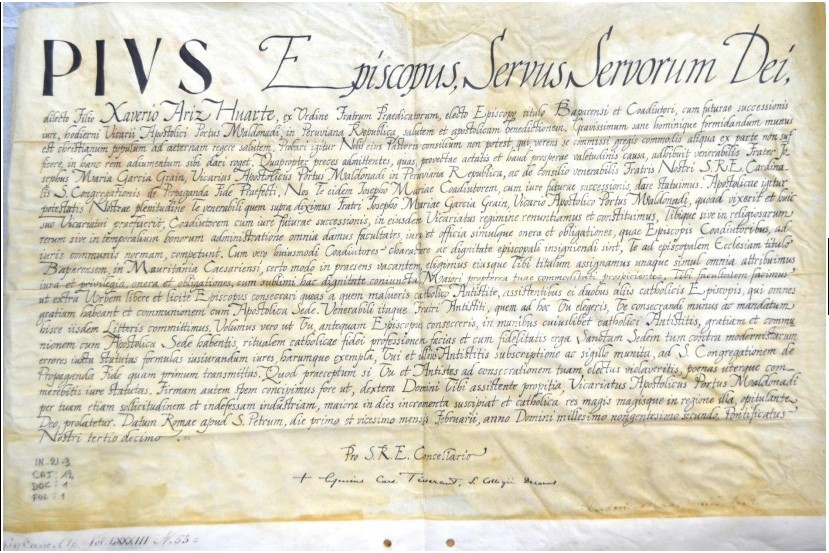 PIVS Episcopus, Servus Servorum Dei,
dilecto Filio Xaverio Ariz Huarte, ex Ordine Fratrum Praedicatorum, electo Episcopo titulo Bapurensi et Coadiutori, cum futurae successionis
iure, hodierni Vicarii Apostolici Portus Maldonadi, in Peruviana Republica, salutem et apostolicam benedictionem. Gravissimum sane hominique formidandum munus
est christianum populum ad aeternam regere salutem. Probari igitur Nobis eius Pastoris consilium non potest, qui, verens se commissi gregis commodis aliqua ex parte non suf
ficere, in hanc rem adiumentum sibi dari roget. Quapropter preces admittentes, quas, provectae aetatis et haud prosperae valetudinis causa, adhibuit venerabilis Frater Io
sephus Maria Garcia Grain, Vicarius Apostolicus Portus Maldonadi in Peruviana Republica, ac de consilio venerabilis Fratris Nostri S.R.E. Cardina
lis S. Congregationis de Propaganda Fide Praefecti, Nos Te eidem Iosepho Mariae Coadiutorem, cum iure futurae successionis, dare statuimus. Apostolicae igitur
potestatis Nostrae plenitudine Te venerabili quem supra diximus Fratri Iosepho Mariae Garcia Grain, Vicario Apostolico Portus Maldonadi, quoad vixerit et huic
suo Vicariatui praefuerit, Coadiutorem cum iure futurae successionis, in eiusdem Vicariatus regimine renuntiamus et constituimus, Tibique sive in religiosarum
rerum sive in temporalium bonorum administratione omnia damus facultates, iura et officia simulque onera et obligationes, quae Episcopis Coadiutoribus, ad
iuris communis normam, competunt. Cum vero huiusmodi Coadiutores charactere ac dignitate episcopali insigniendi sint, Te ad episcopalem Ecclesiam titulo
Bapurensem, in Mauritania Caesariensi, certo modo in praesens vacantem, eligimus eiusque Tibi titulum assignamus unaque simul omnia attribuimus
iura et privilegia, onera et obligationes, cum sublimi hac dignitate coniuncta. Maiori propterea tuae commoditati prospicientes, Tibi facultatem facimus
ut extra Urbem libere et licite Episcopus consecrari queas a quem malueris catholico Antistite, assistentibus ei duobus aliis catholicis Episcopis, qui omnes
gratiam habeant et communionem cum Apostolica Sede. Venerabili itaque Fratri Antistiti, quem ad hoc Tu elegeris, Te consecrandi munus ac mandatum
hisce iisdem Litteris committimus. Volumus vero ut Tu, antequam Episcopus consecreris, in manibus cuiuslibet catholici Antistitis, gratiam et commu
nionem cum Apostolica Sede habentis, ritualem catholicae fidei professionem facias et cum fidelitatis erga Sanctam Sedem tum contra modernistarum
errores iuxta statutas formulas iusiurandum iures, harumque exempla, Tui et ullius Antistitis subscriptione ac sigillo munita, ad S. Congregationem de
Propaganda Fide quam primum transmittas. Quod praeceptum si Tu et Antistes ad consecrationem tuam electus violaveritis, poenas uterque com
merebitis iure statutas. Firmam autem spem concipimus fore ut, dextera Domini Tibi assistente propitia, Vicariatus Apostolicus Portus Maldonadi
per tuam etiam sollicitudinem et indefessam industriam, maiora in dies incrementa suscipiat et catholica res magis magisque in regione illa, opitulante
Deo, prolatetur. Datum Romae apud S. Petrum, die primo et vicesimo mensis Februarii, anno Domini millesimo nongentesimo secundo, Pontificatus
Nostri tertio decimo
Pro S.R.E. Cancellario
+ Eugenius Card. Tisserant, S. Collegii Decanus
IN-21-3
CAJ: 12
DOC: 1
FOL: 1
Vol. LXXXIII N. 55 =